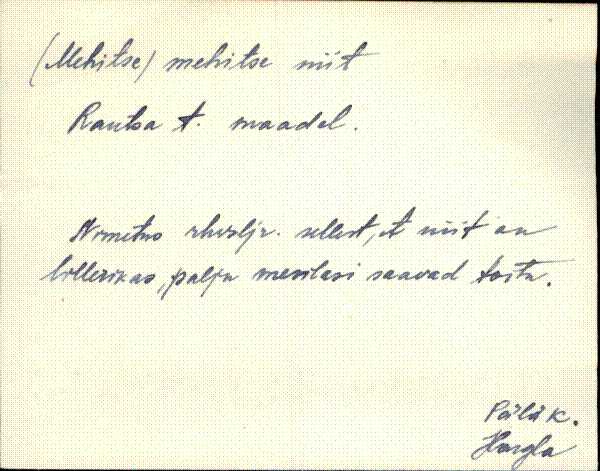 (Mehitse) mehitse niit
Rautsa t. maadel.
Nimetus rhvsljr. sellest, et niit on
lillerikas, palju mesilasi saavad toitu.
Pärlik.
Hargla